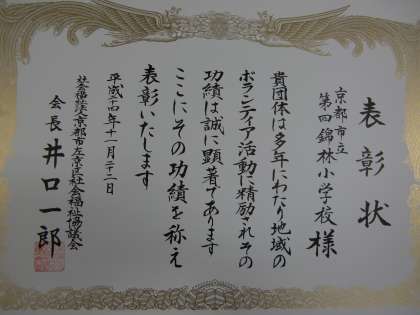 表彰状
京都市立
第四錦林小学校様
貴団体は多年にわたり地域の
ボランティア活動に精励されその
功績は誠に顕著であります
ここにその功績を称え
表彰いたします
平成二十四年十一月二十二日
社会福祉法人京都市左京区社会福祉協議会
会長 井口一郎